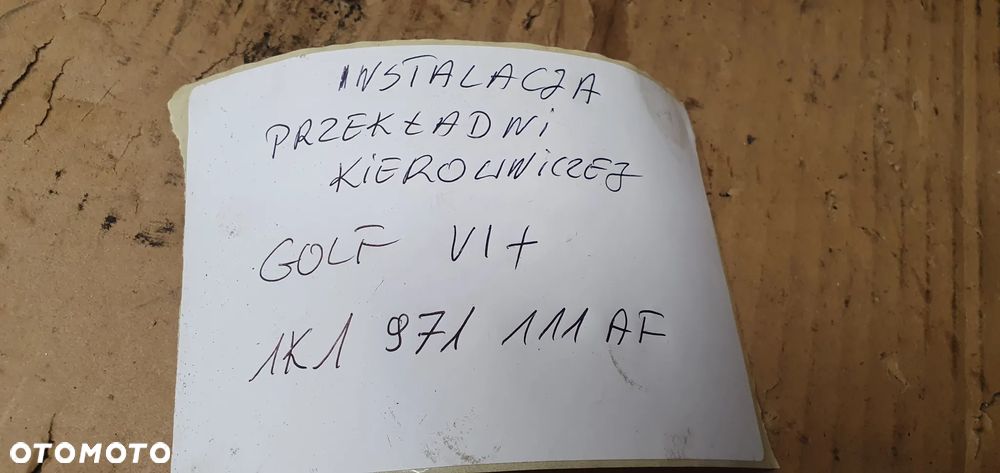 INSTALACJA
PRZEKŁADNI
KIEROWNICZEJ
GOLF VI+
1K1 971 111 AF
OTOMOTO